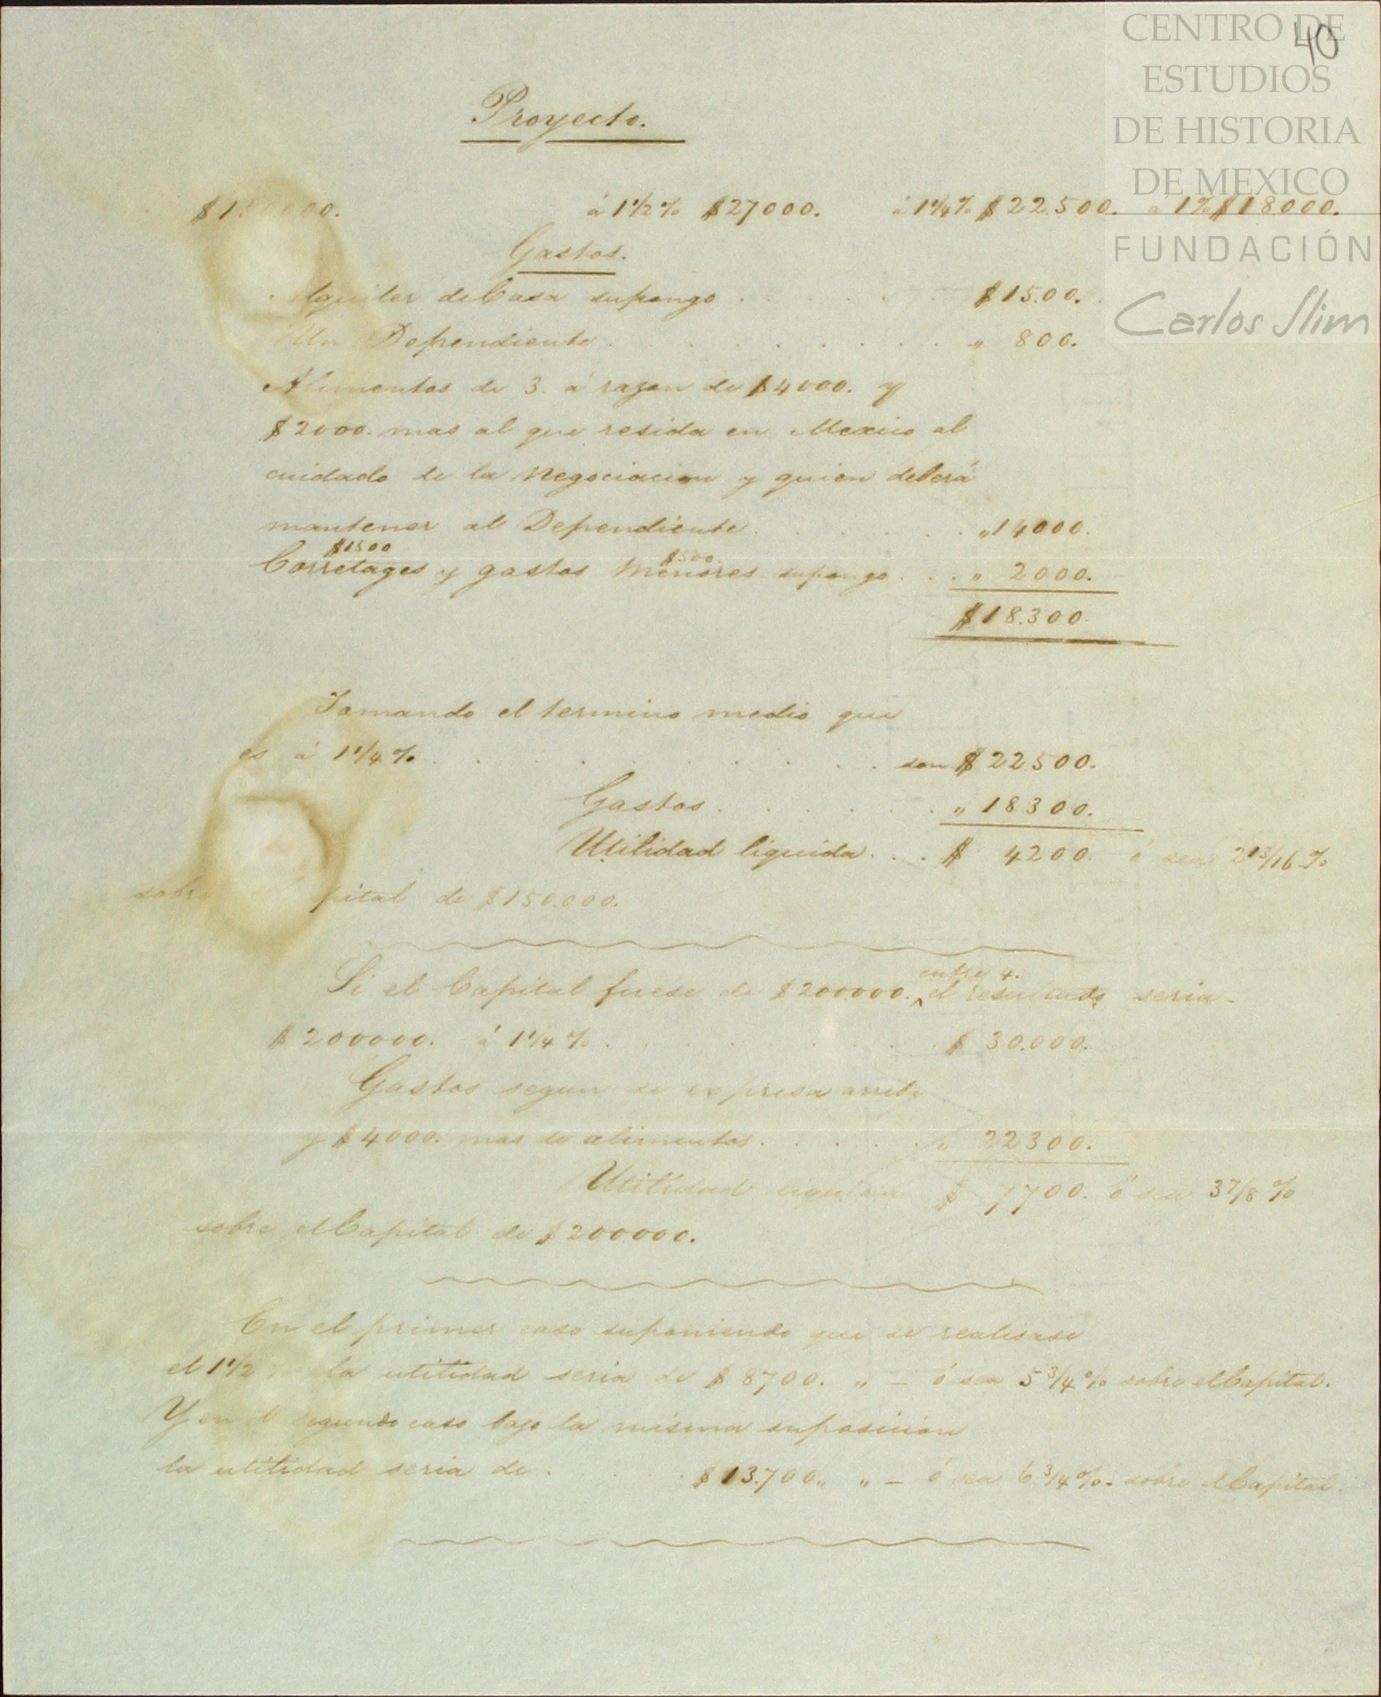 CENTRO DE
ESTUDIOS
DE HISTORIA
DE MEXICO
FUNDACIÓN
Carlos Slim
40
Proyecto.
á 1 1/2 % $27000. á 1 1/4 % $22.500. á 1 % $18000.
Gastos.
Alquiler de Casa supongo . . . . . $1500.
Un Dependiente . . . . . . . . . " 800.
Alimentos de 3. á razon de $4000. y
$2000. mas al que resida en Mexico al
cuidado de la Negociacion y quien deberá
mantener al Dependiente . . . . . . "14000.
$1500 $500
Corretages y gastos menores supongo . . . " 2000.
$18.300.
Tomando el termino medio que
es á 1 1/4 % . . . . . . . . . . son $22500.
Gastos . . . . . . " 18300.
Utilidad liquida . . . $ 4200. ó sea 2 13/16 %
pital de $150.000.
entre 4.
Si el Capital fuese de $200000. ^ el resultado seria -
$200000. á 1 1/4 % . . . . . . . . $ 30.000.
Gastos segun se expresa arriba
y $4000. mas de alimentos . . . . . " 22300.
Utilidad liquida $ 7700. ó sea 3 7/8 %
sobre el Capital de $200000.
En el primer caso suponiendo que se realisase
el 1 1/2 % la utilidad seria de $8700. " - ó sea 5 3/4 % sobre el Capital.
Y en el segundo caso bajo la misma suposicion
la utilidad seria de . . . . . $13.700 " " - ó sea 6 3/4 %. sobre el Capital.